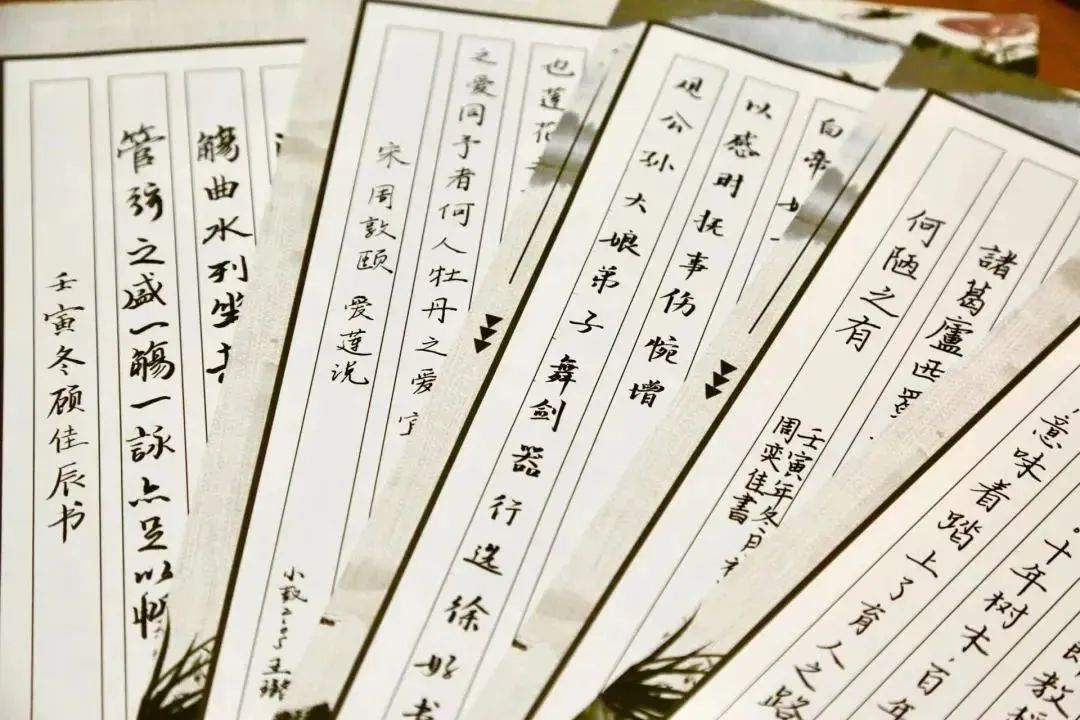 教
十年树木，百年
意味着踏上了育人之路
諸葛廬西蜀
何陋之有
壬寅年冬日
周奕佳書
白帝
以感时抚事伤惋增
观公孙大娘弟子舞剑器行选徐好书
也莲花
之爱同予者何人牡丹之爱宜
宋周敦颐 爱莲说
小教2205 王
觴曲水列坐
管弦之盛一觴一詠亦足以暢
壬寅冬顾佳辰书